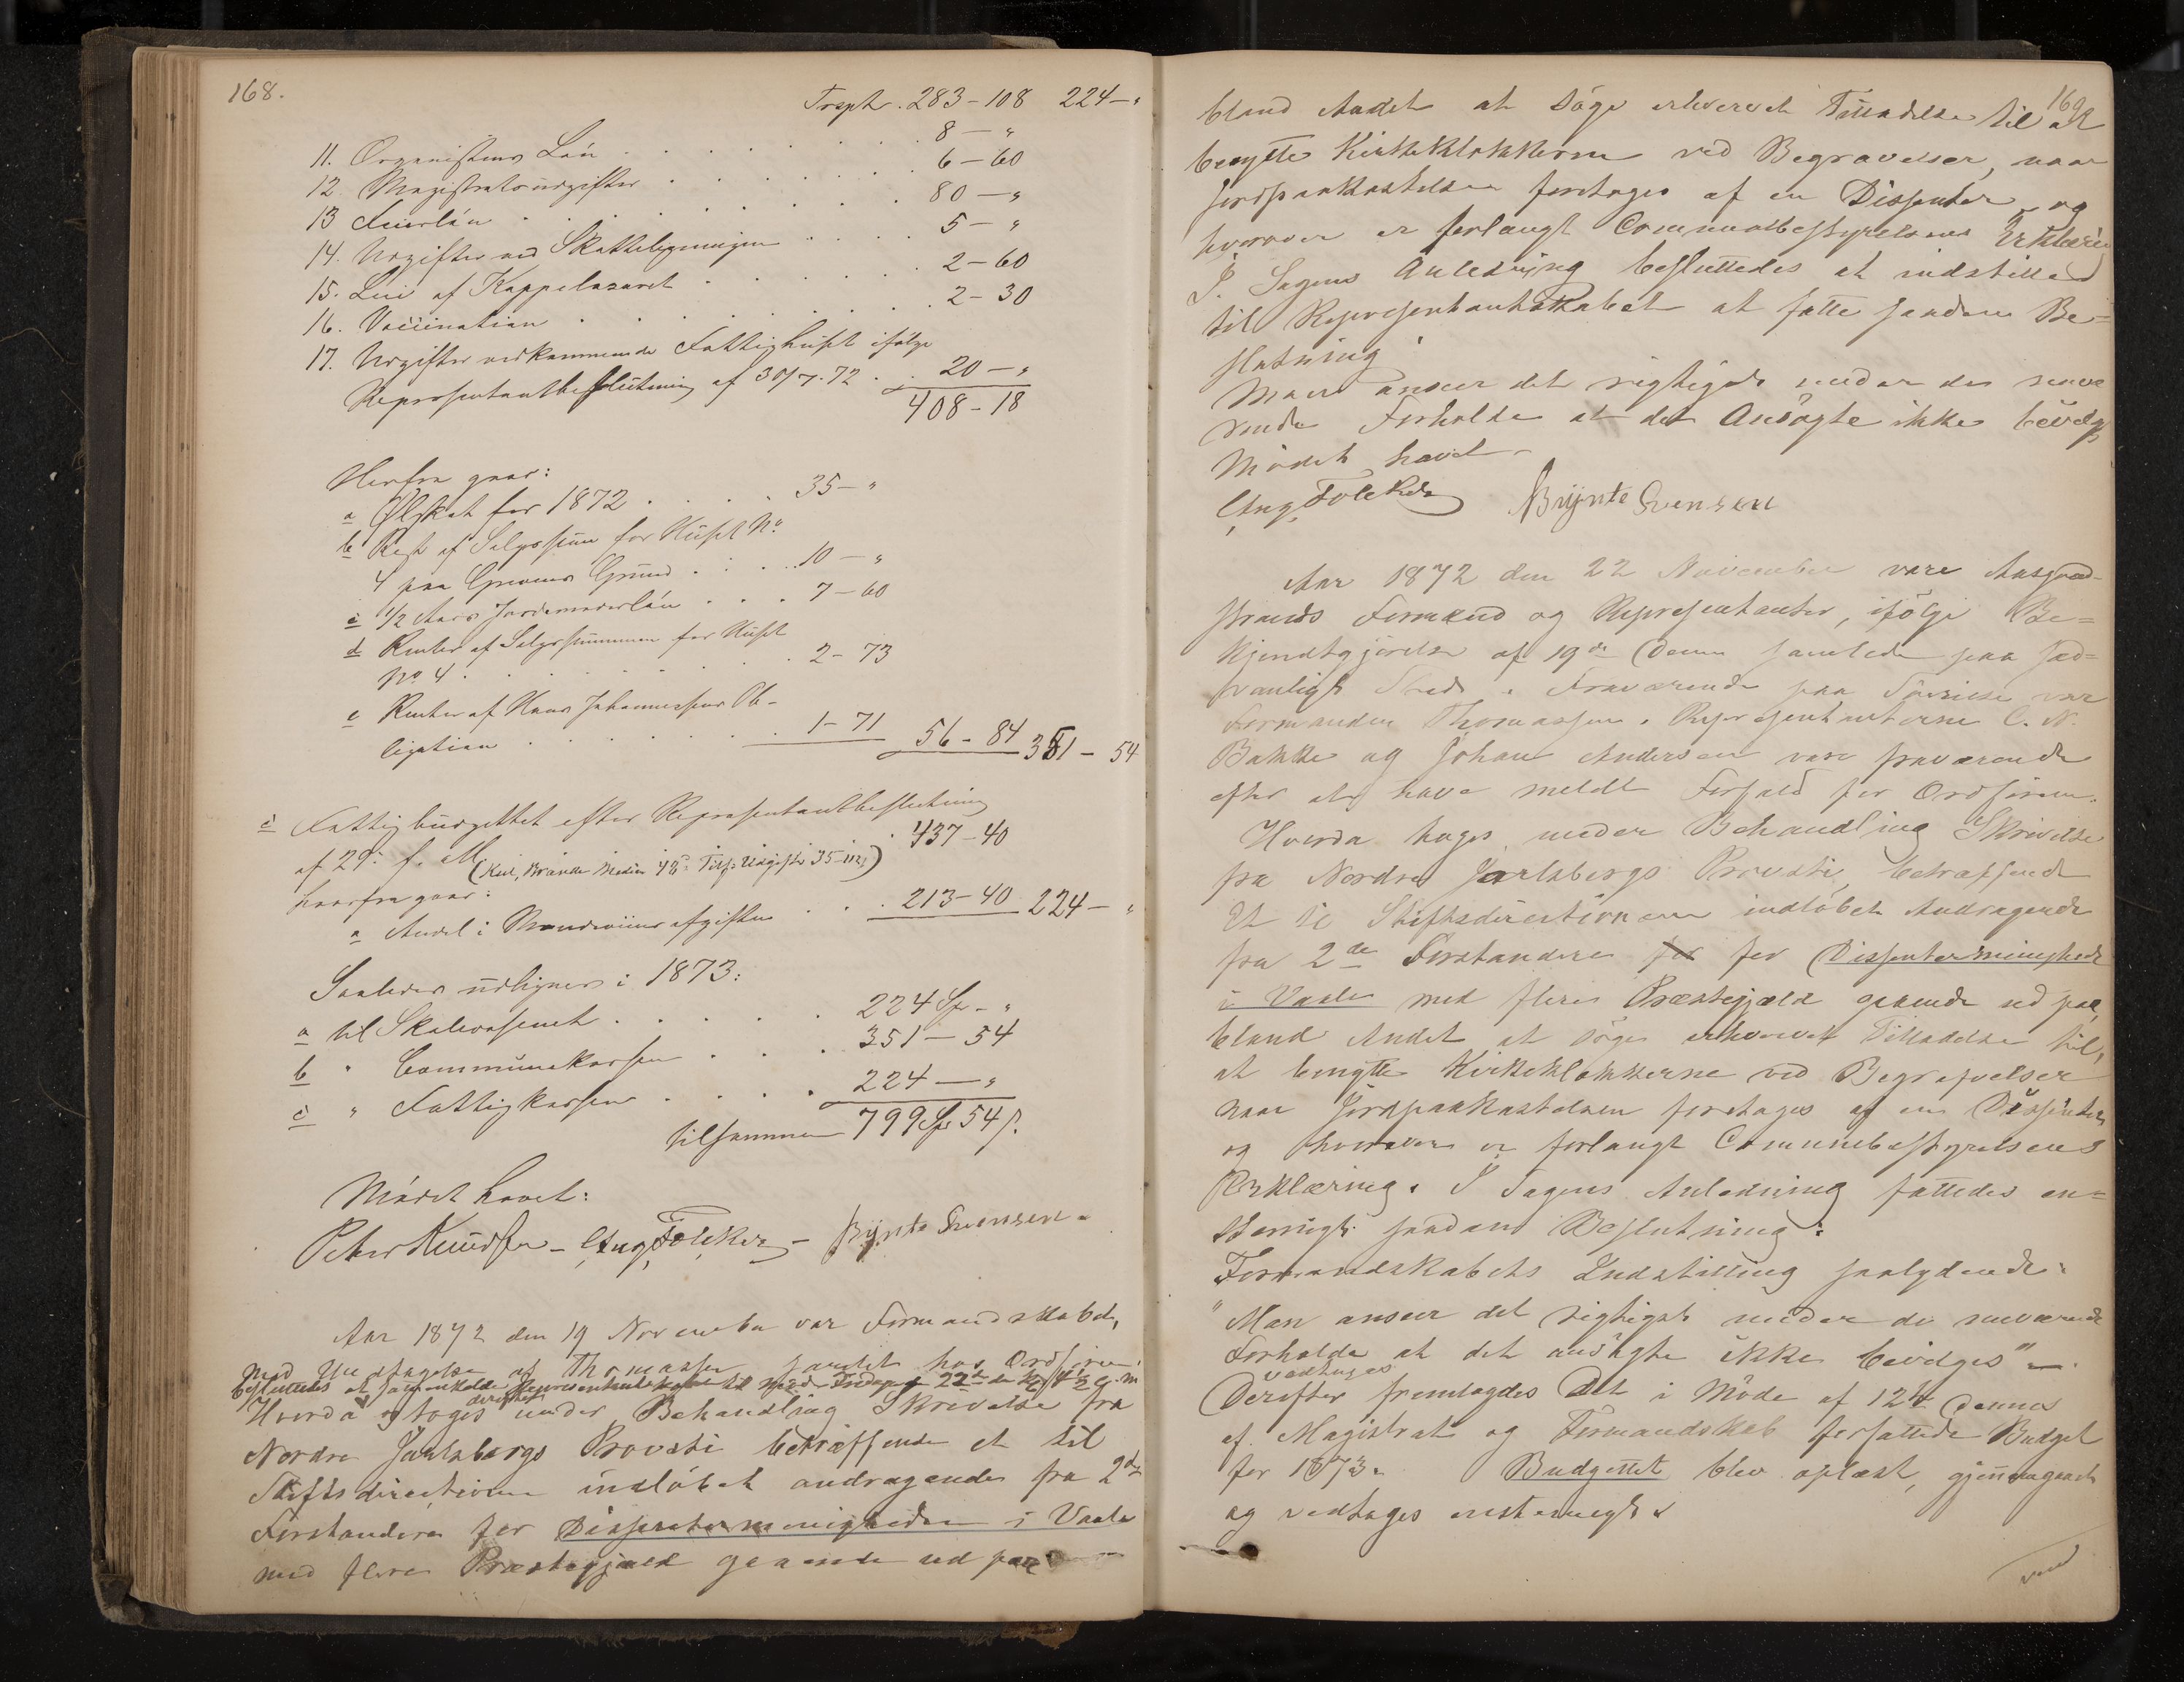 168.
Trspt. 283-108 224-"
11. Organistens Løn . . . . . . . 8-"
12. Magistratsudgifter . . . . . . . 6-60
13 Feierløn . . . . . . . 80-"
14. Udgifter ved Skatteligningen . . . . 5-"
15. Leie af Koppelazaret . . . . . . 2-60
16. Vaccination . . . . . . . 2-30
17. Udgifter vedkommende Fattighuset ifølge
Repræsentantbeslutning af 30/7.72 . . 20-"
408-18
Herfra gaar:
a Ølskat for 1872 . . . . 35-"
b Rest af Salgssum for Huset No
4 paa Grevens Grund . . . . 10-"
c 1/2 Aars Jordemoderløn . . . 7-60
d Renter af Salgssummen for Huset
No 4 . . . . . . . 2-73
e Renter af Hans Johannessens Ob-
ligation . . . . . . . 1-71 56-84 351-54
c Fattigbudgettet efter Repræsentantbeslutning
af 29 f. M. 437-40
herfra gaar:
a Andel i Brændeviinsafgiften . . . 213-40 224-"
Saaledes udlignes i 1873:
a til Skolevæsenet . . . . . 224 Spd-"
b " Communekassen . . . . 351-54
c " Fattigkassen . . . . 224-"
tilsammen 799 Spd 54 s.
Mødet hævet:
Peter Knudsen - Aug. Foleker - Brynte Svensen -
Aar 1872 den 19 November var Formandskabet,
med Undtagelse af Thomassen samlet hos Ordføreren.
besluttedes at sammenkalde Repræsentantskabet til Møde Fredag d 22de ds Kl 4 1/2 e. m
Hvorda og derefter toges under Behandling Skrivelse fra
Nordre Jarlsbergs Provsti betræffende et til
Stiftsdirectionen indløbet andragende fra 2de
Forstandere for Dissentermenigheden i Vaale
med flere Præstegjæld gaaende ud paa
169
bland Andet at søge erhvervet Tilladelse til at
benytte Kirkeklokkerne ved Begravelser, naar
Jordpaakastelsen foretages af en Dissenter, og
hvorover er forlangt Communebestyrelsens Erklæring
I Sagens Anledning besluttedes at indstille
til Repræsentantskabet at fatte saadan Be-
slutning
Man anseer det rigtigst under de nuvæ
rende Forholde at det Ansøgte ikke bevilges
Mødet hævet -
Aug. Foleker Brynte Svensen
Aar 1872 den 22 November vare Aasgaard-
strands Formænd og Repræsentanter, ifølge Be-
kjendtgjørelse af 19de Dennes samlede paa sæd-
vanligt Sted. Fraværende paa Søreise var
Formanden Thomassen. Repræsentanterne C. N.
Bakke og Johan Andersen vare fraværende
efter at have meldt Forfald for Ordføreren.
Hvorda toges under Behandling Skrivelse
fra Nordre Jarlsbergs Provsti, betræffende
Et til Stiftsdirectionen indløbet Andragende
fra 2de Forstandere for for Dissentermenighed
i Vaale med flere Præstegjæld gaaende ud paa,
bland Andet at søge erhvervet Tilladelse til,
at benytte Kirkeklokkerne ved Begravelser
naar Jordpaakastelsen foretages af en Dissenter
og hvorover er forlangt Communebestyrelsens
Erklæring. I Sagens Anledning fattedes en-
stemmigt saadan Beslutning:
Formandskabets Indstilling saalydende:
"Man anseer det rigtigst under de nuværende
Forholde at det ansøgte ikke bevilges" -
vedtages
Derefter fremlagdes det i Møde af 12te Dennes
af Magistrat og Formandskab forfattede Budget
for 1873. Budgettet blev oplæst, gjennemgaaet
og vedtages enstemmigt.